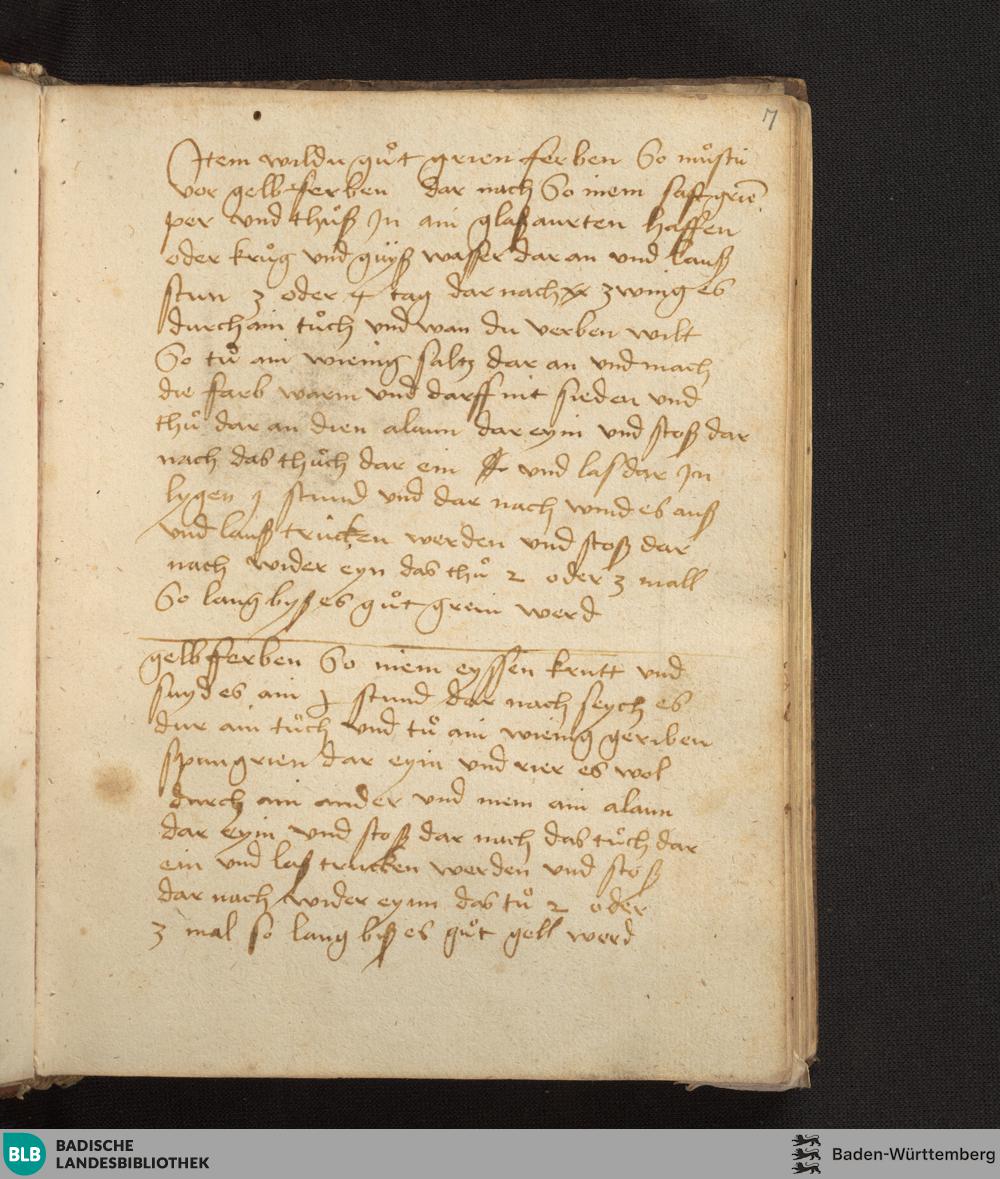 7
Jtem wildu guͦt grien ferben So muͦstu
vor gelb ferben dar nach So niem saft grie̅
per vnd thuͦß Jn ain glaßaurten haffen
oder kruͦg vnd guͤyß wasser dar an vnd lauß
stun 3 oder 4 tag dar nach zwing es
durch ain tuͦch vnd wan du verben wilt
So tuͦ ain wienig saltz dar an vnd mach
die farb warm vnd darff nit sieden vnd
thuͦ dar an dien alaun dar eyin vnd stoß dar
nach das thuͦch dar ein vnd las dar Jn
lygen j stund vnd dar nach wind es auß
vnd lauß trucken werden vnd stoß dar
nach wider eyn das thuͦ 2 oder 3 mall
So lang byß es guͦt grein werd
gelb ferben So niem eyssen krutt vnd
suyd es ain j stund dar nach seych es
dur ain tuͦch vnd tuͦ ain wienig geriben
spungrien dar eyin vnd rier es wol
durch ain ander vnd niem ain alaun
dar eyin vnd stoß dar nach das tuͦch dar
ein vnd las trucken werden vnd stoß
dar nach wider eyinn das tuͦ 2 oder
3 mal so lang biß es guͦt gell werd
BLB BADISCHE
LANDESBIBLIOTHEK
Baden-Württemberg